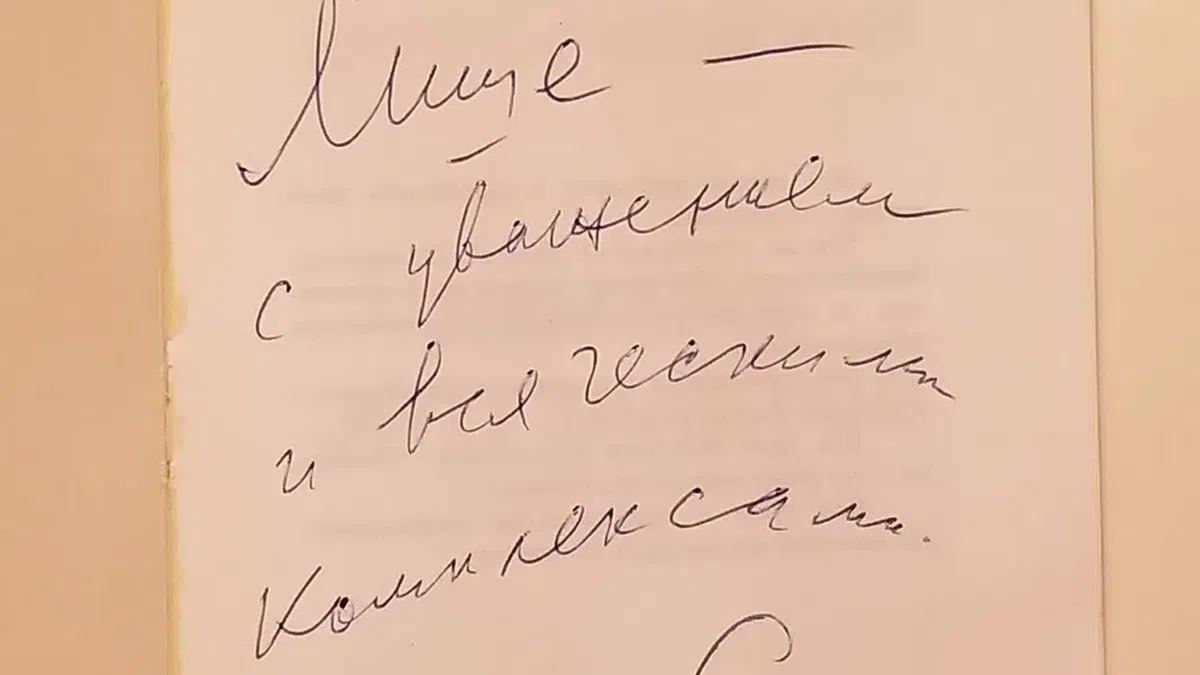 Мише —
с уважением
и всяческими
комплексами.
С